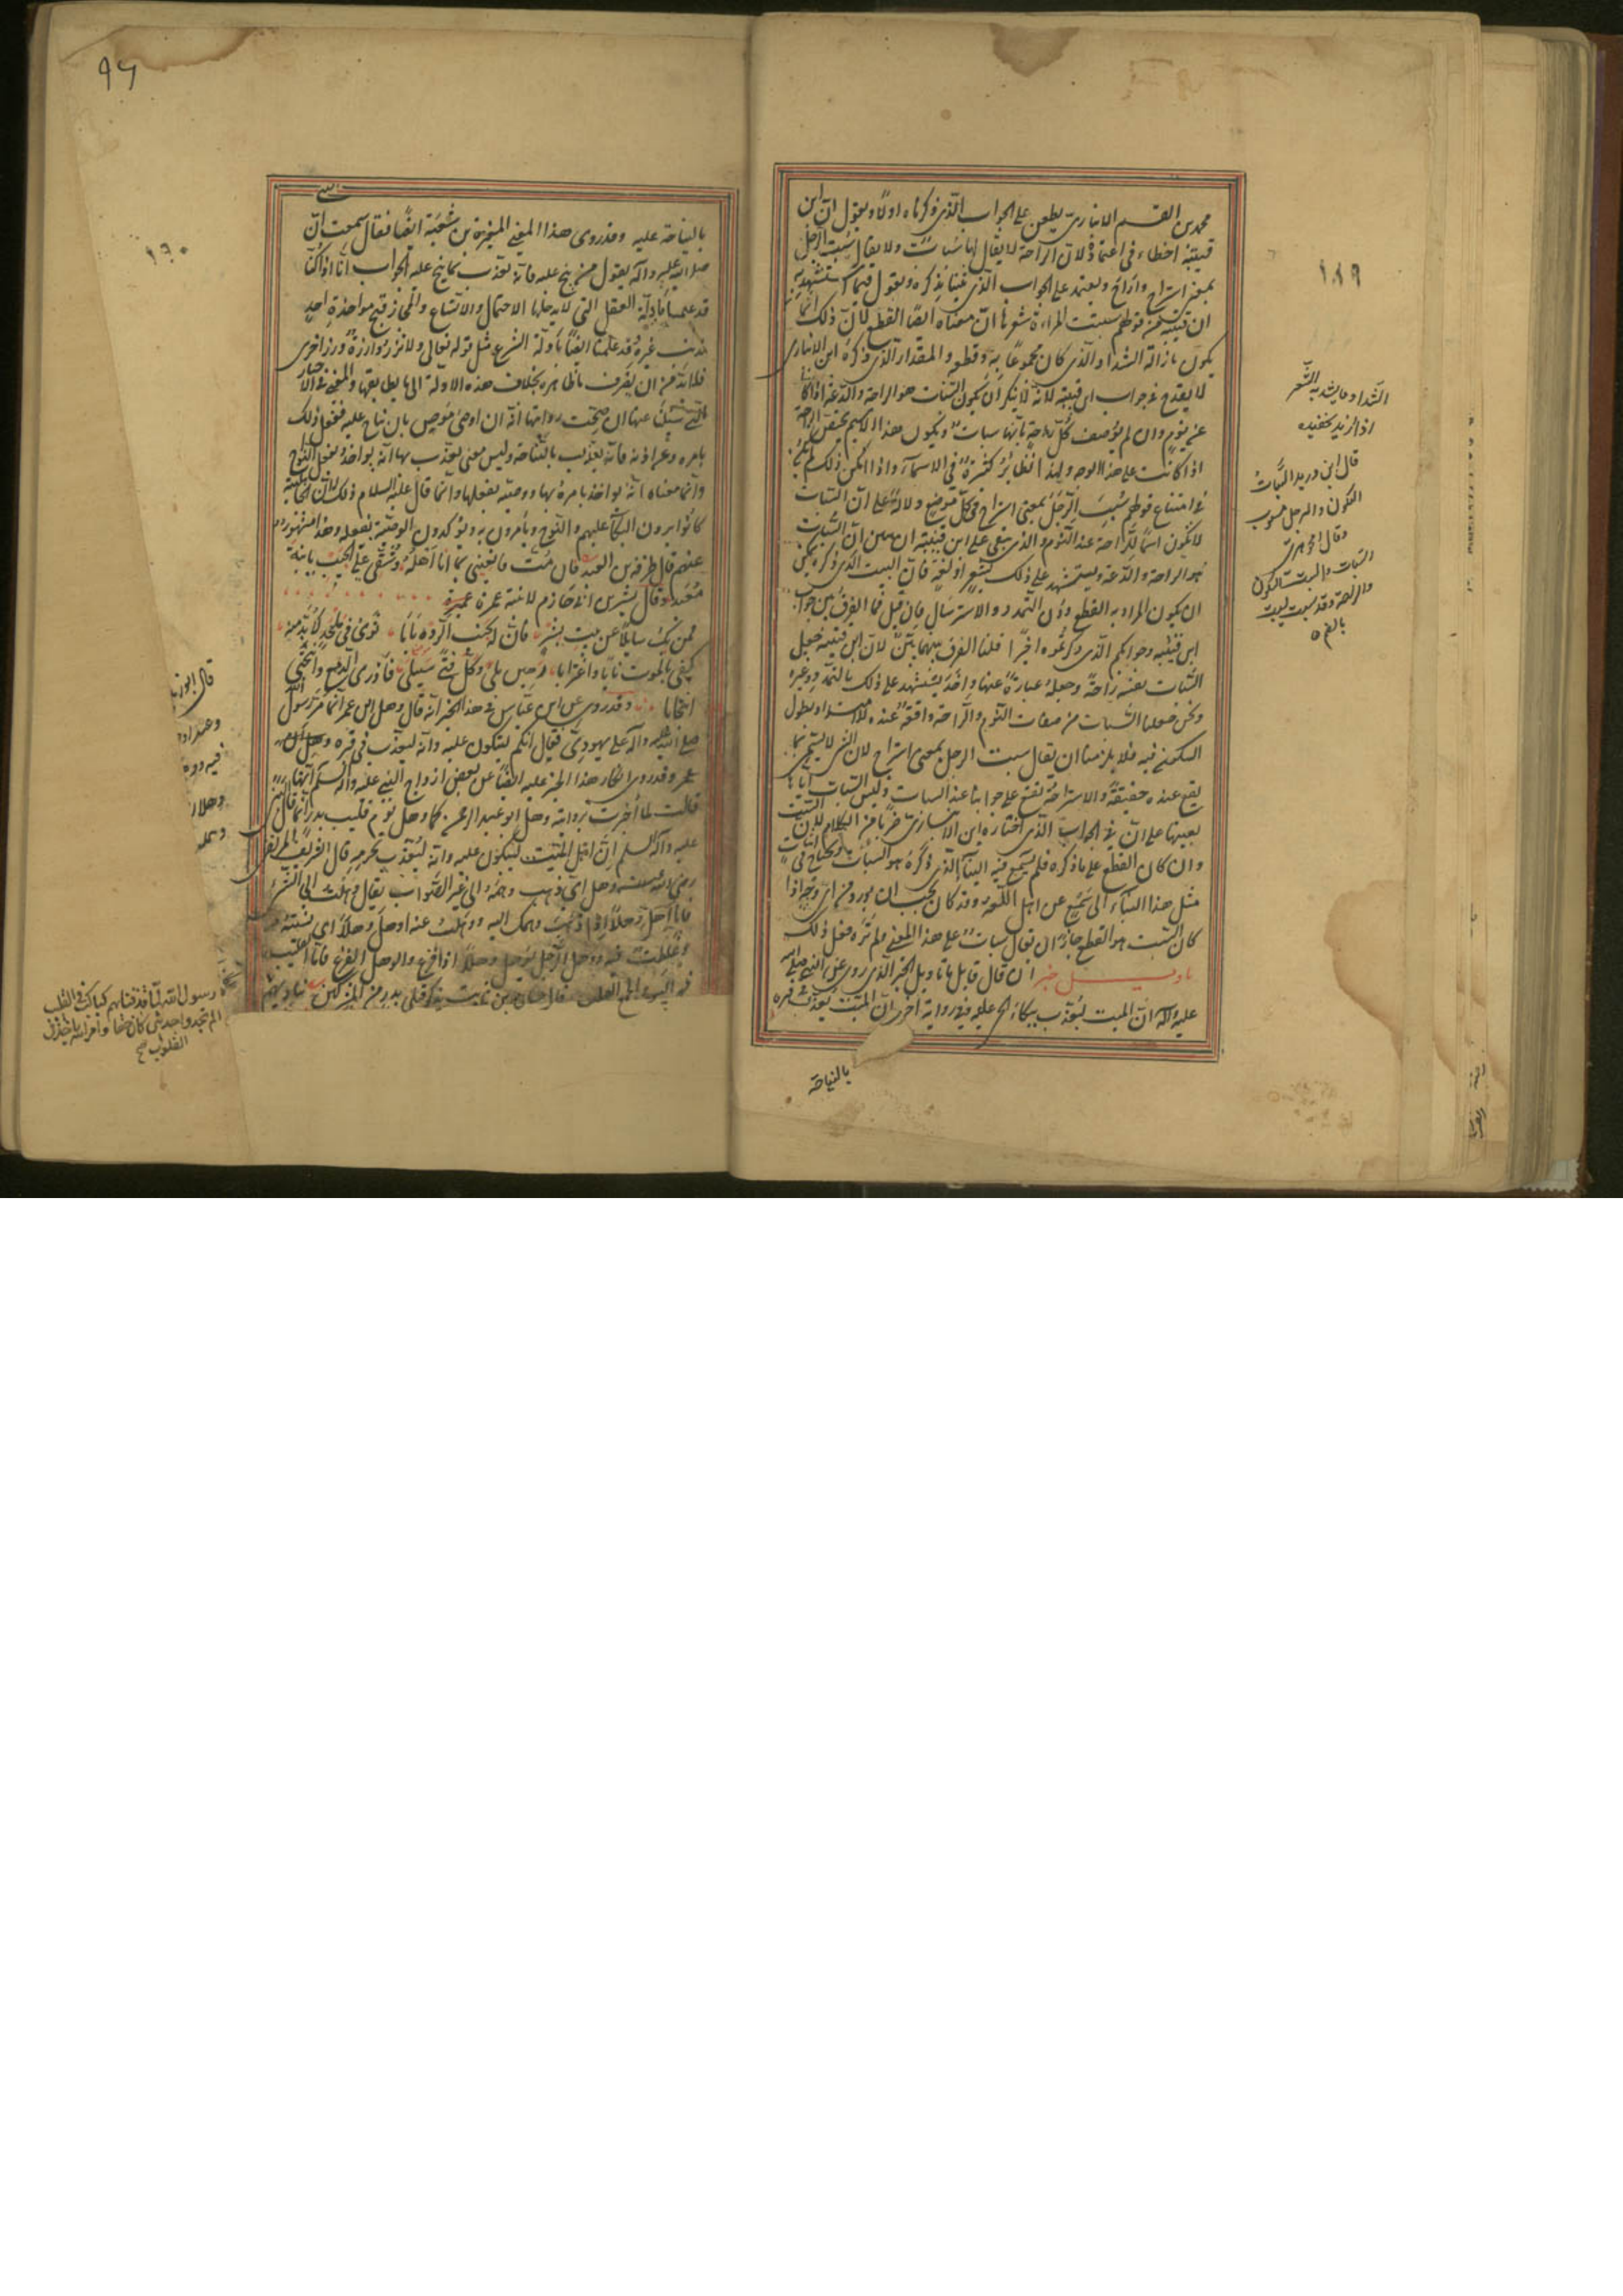 محمد بن القسم الانباري يطعن على الجواب الذي ذكرناه اولا ويقول ان ابن
قتيبة اخطاء في اعتماده لان الراحة لا يقال لها سبات ولا يقال سبت الرجل
بمعنى استراح واراح ويعتمد على الجواب الذي ثنينا بذكره ويقول فيما استشهد به
ابن قتيبة من قولهم سبتت المراءة شعرها ان معناه ايضا القطع لان ذلك انما
يكون بازالة الشداد الذي كان مجموعا به وقطعه والمقدار الذي ذكره ابن الانباري
لا يقدح في جواب ابن قتيبة لانه لا ينكر ان يكون السبات هو الراحة والدعة اذا كانتا
عن نوم وان لم يوصف كل راحة بانها سبات ويكون هذا الاسم يختص الراحة
اذا كانت على هذا الوجه ولهذا نظائر كثيرة في الاسماء واذا امكن ذلك لم يكن
في امتناع قولهم سبت الرجل بمعنى استراح في كل موضع دلالة على ان السبات
لا يكون اسما للراحة عند النوم والذي يبقى على ابن قتيبة ان يبين ان السبات
هو الراحة والدعة ويستشهد على ذلك بشعر او لغة فان البيت الذي ذكره يمكن
ان يكون المراد به القطع دون التمدد والاسترسال فان قيل فما الفرق بين جواب
ابن قتيبة وجوابكم الذي ذكرتموه اخيرا قلنا الفرق بينهما بين لان ابن قتيبة جعل
السبات نفسه راحة وجعله عبارة عنها واخذ يستشهد على ذلك بالتمدد وغيره
ونحن جعلنا السبات من صفات النوم والراحة واقعة عنده للامتداد وطول
السكون فيه فلا يلزمنا ان يقال سبت الرجل بمعنى استراح لان الشي لا يسمى بما
يقع عنده حقيقة والاستراحة تقع على جوابنا عند السبات وليس السبات اياها
بعينها على ان في الجواب الذي اختاره ابن الانباري ضربا من الكلام لان السبت
وان كان القطع على ما ذكره فلم يسمع فيه البناء الذي ذكره هو السبات ويحتاج في اثبات
مثل هذا البناء الى سمع عن اهل اللغة وقد كان يجب ان يورد من اي وجه اذا
كان السبت هو القطع جاز ان يقال سبات على هذا المعنى ولم نره فعل ذلك
تاويل خبر ان قال قايل ما تاويل الخبر الذي روي عن النبي صلى الله
عليه واله ان الميت ليعذب ببكاء الحي عليه وفي رواية اخرى ان الميت يعذب في قبره
بالنياحة
١٨٩
الشداد ما يشد به الشعر
قال ابن دريد السبات
السكون والرجل مسبوت
وقال الجوهري
٩٦
١٩٠
بالنياحة عليه وقد روى هذا المعنى المغيرة بن شعبة ايضا فقال سمعت ان
صلى الله عليه واله يقول من نيح عليه فانه يعذب بما نيح عليه الجواب انا اذا كنا
قد علمنا بادلة العقل التي لا يدخلها الاحتمال والاتساع والمجاز قبح مواخذة احد
بذنب غيره وقد علمنا ايضا بادلة الشرع مثل قوله تعالى ولا تزر وازرة وزر اخرى
فلا بد من ان يصرف ما ظاهره بخلاف هذه الادلة الى ما يطابقها والمعنى في الاخبار
التي سئلنا عنها ان صحت روايتها انه ان اوصى موص بان يناح عليه ففعل ذلك
بامره وعن اذنه فانه يعذب بالنياحة وليس معنى يعذب بها انه يواخذ بفعل النوح
وانما معناه انه يواخذ بامره بها ووصيته بفعلها وانما قال عليه السلام ذلك لان الجاهلية
كانوا يرون البكاء عليهم والنوح ويامرون به ويؤكدون الوصية بفعله وهذا مشهور
عنهم قال طرفة بن العبد فان مت فانعيني بما انا اهله وشقي علي الجيب يا ابنة
معبد وقال بشر بن ابي خازم لابنته عمرة عميرة
فمن يك سائلا عن بيت بشر فان له بجنب الرده بابا ثوى في ملحد لا بد منه
كفى بالموت نايا واغترابا رهين بلى وكل فتى سيبلى فاذري الدمع وانتحبي
انتحابا وقد روي عن ابن عباس في هذا الخبر انه قال وهل ابن عمر انما مر رسول الله
صلى الله عليه واله على يهودي فقال انكم لتبكون عليه وانه ليعذب في قبره
عمر وقد روي انكار هذا الخبر عليه ايضا عن بعض ازواج النبي عليه واله السلم انها
قالت لما اخبرت بروايته وهل ابو عبد الرحمن كما وهل يوم قليب بدر انما قال النبي
عليه واله السلم ان اهل الميت ليبكون عليه وانه ليعذب بجرمه قال الشريف المرتضى
رضي الله عنه وهل اي ذهب وهمه الى غير الصواب يقال وهلت الى الشيء
فانا اهل وهلا اذا ذهب وهمك اليه ووهلت عنه اوهل وهلا اي نسيته
وغلطت فيه ووهل الرجل يوهل وهلا اذا فزع والوهل الفزع فاما القليب
فهو البير والجمع القلب قال حسان بن ثابت يذكر قتلى بدر من المشركين يناديهم
رسول الله لما قذفناهم كباكب في القليب
الم تجدوا حديثي كان حقا وامر الله ياخذ
القلوب صح